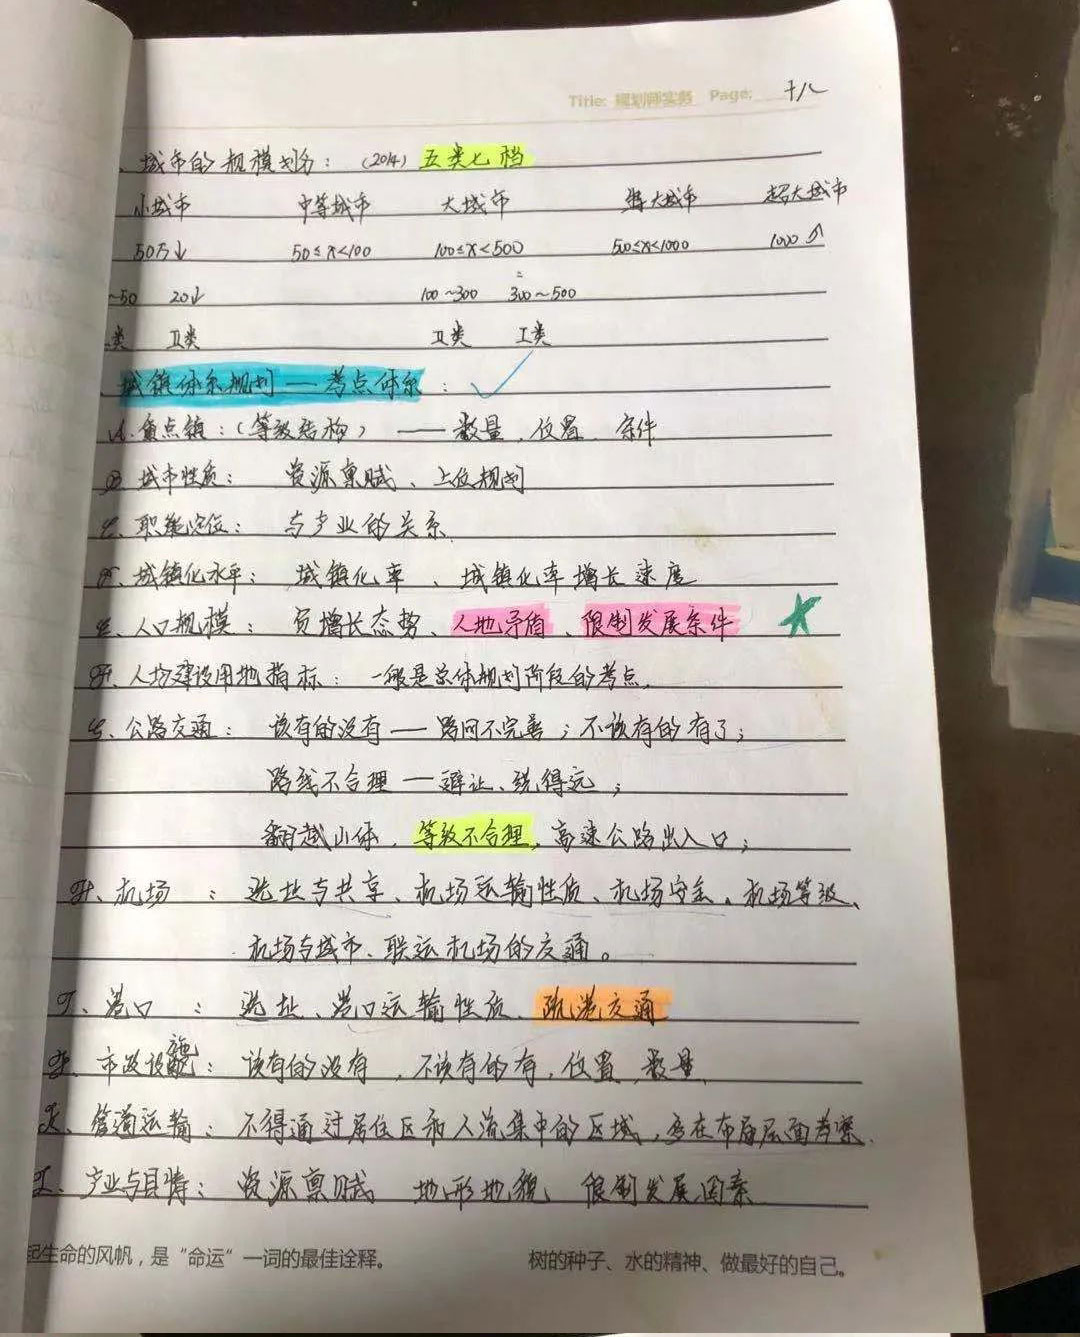 Title: 规划师实务 Page: 十八
、城市的规模划分：（2014）五类七档
小城市 中等城市 大城市 特大城市 超大城市
50万↓ 50≤x<100 100≤x<500 500≤x<1000 1000↗
~50 20↓ 100~300 300~500
类 Ⅱ类 Ⅱ类 Ⅰ类
城镇体系规划——考点体系：
A、重点镇：（等级结构）——数量、位置、条件
B、城市性质：资源禀赋、上位规划
C、职能定位：与产业的关系
D、城镇化水平：城镇化率、城镇化率增长速度
E、人口规模：负增长态势、人地矛盾、限制发展条件
F、人均建设用地指标：一般是总体规划阶段的考点。
G、公路交通：该有的没有——路网不完善；不该有的有了；
路线不合理——避让、绕得远；
翻越山体，等级不合理，高速公路出入口；
H、机场：选址与共享、机场运输性质、机场安全、机场等级、
机场与城市、联运机场的交通。
I、港口：选址、港口运输性质、疏港交通
J、市政设施：该有的没有，不该有的有，位置，数量
K、管道运输：不得通过居住区和人流集中的区域，多在布局层面考察.
L、产业与县情：资源禀赋 地形地貌、限制发展因素
起生命的风帆，是“命运”一词的最佳诠释。 树的种子、水的精神、做最好的自己。